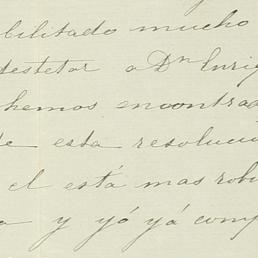 bilitado mucho
destetar a Dn Enriq
hemos encontrad
de esta resoluci
el está mas robu
a y yó yá comp